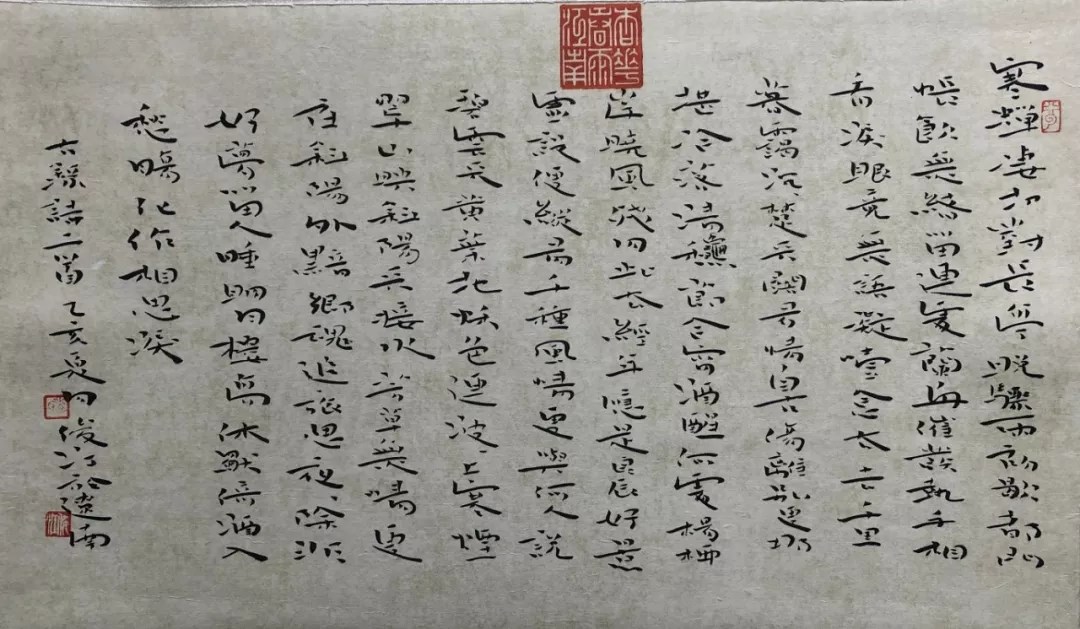 杏花春雨江南
寒蟬淒切對長亭晚驟雨初歇都門
帳飲無緒留連處蘭舟催發執手相
看淚眼竟無語凝噎念去去千里
暮靄沉楚天闊多情自古傷離別更那
堪冷落清秋節今宵酒醒何處楊柳
岸曉風殘月此去經年應是良辰好景
虛設便縱有千種風情更與何人說
碧雲天黃葉地秋色連波、上寒煙
翠山映斜陽天接水芳草無情更
在斜陽外黯鄉魂追旅思夜、除非
好夢留人睡明月樓高休獨倚酒入
愁腸化作相思淚
錄詩二首 亥夏月俊於遼南